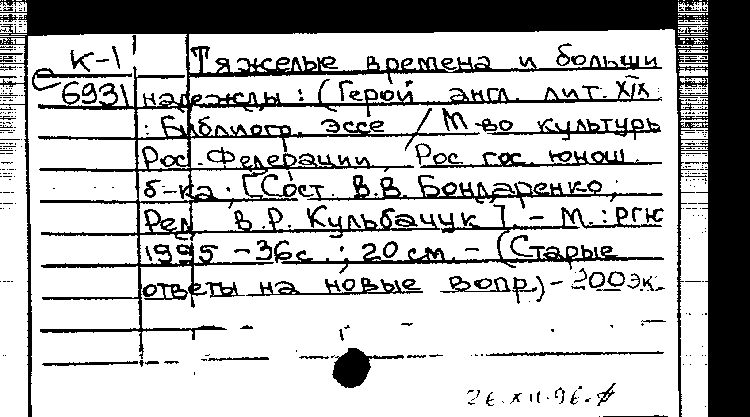 К-1 Тяжелые времена и больши
6931 надежды: (Герой англ. лит. XIX
: Библиогр. эссе / М-во культуры
Рос. Федерации, Рос. гос. юнош.
б-ка; [Сост. В.В. Бондаренко;
Ред. В.Р. Кульбачук]. - М.: РГЮ
1995 - 36с.; 20 см. - (Старые
ответы на новые вопр.) - 200 эк.
26.XII.96.